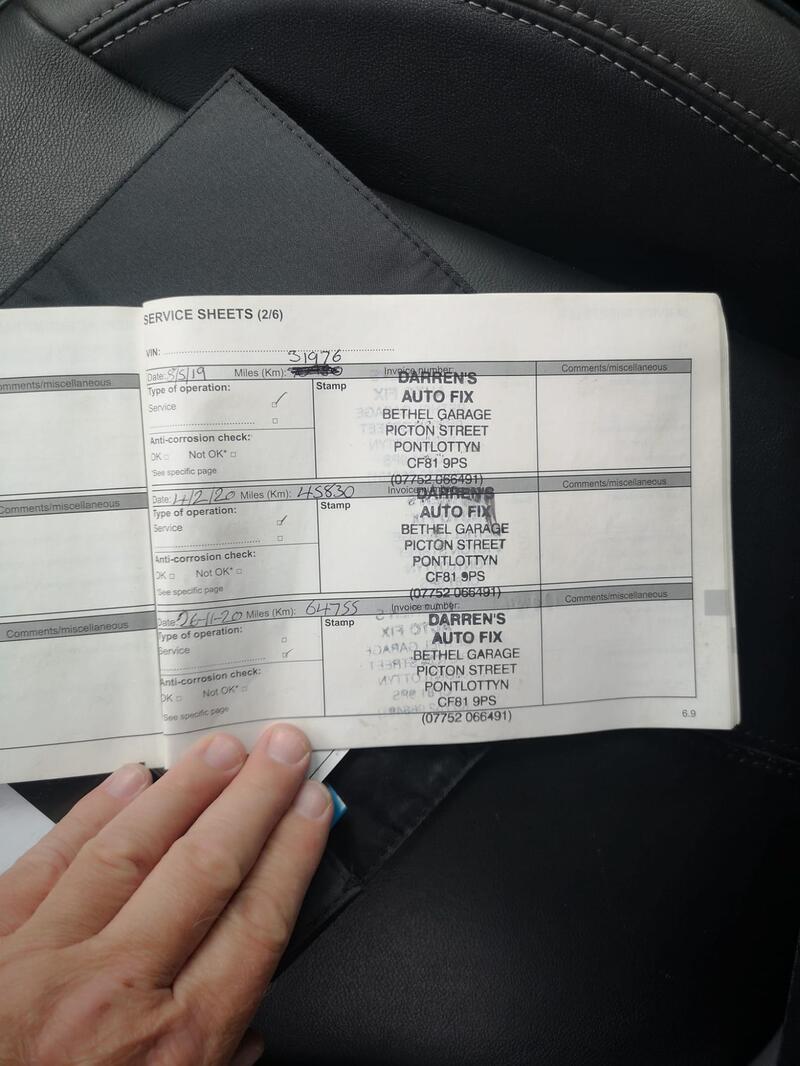 SERVICE SHEETS (2/6)
VIN:
31976
Date: 8/5/19 Miles (Km): Invoice number: Comments/miscellaneous
Type of operation:
Service
Anti-corrosion check:
OK □ Not OK* □
*See specific page
Stamp
DARREN'S
AUTO FIX
BETHEL GARAGE
PICTON STREET
PONTLOTTYN
CF81 9PS
(07752 066491)
Date: 4/2/20 Miles (Km): 45830 Invoice number: Comments/miscellaneous
Type of operation:
Service
Anti-corrosion check:
OK □ Not OK* □
*See specific page
Stamp
DARREN'S
AUTO FIX
BETHEL GARAGE
PICTON STREET
PONTLOTTYN
CF81 9PS
(07752 066491)
Date: 26-11-20 Miles (Km): 64755 Invoice number: Comments/miscellaneous
Type of operation:
Service
Anti-corrosion check:
OK □ Not OK* □
*See specific page
Stamp
DARREN'S
AUTO FIX
BETHEL GARAGE
PICTON STREET
PONTLOTTYN
CF81 9PS
(07752 066491)
6.9
omments/miscellaneous
Comments/miscellaneous
Comments/miscellaneous